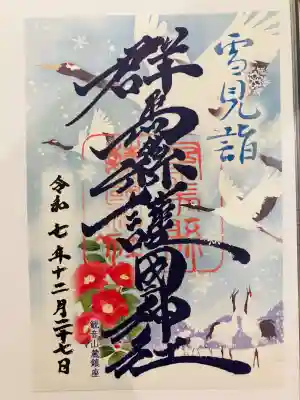 雪見詣
群馬縣護国神社
令和七年十二月二十七日
観音山麓鎮座